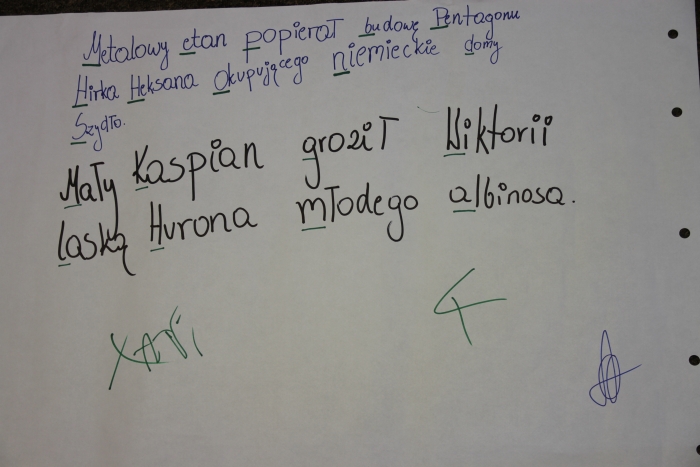 Metalowy etan popierał budowę Pentagonu
Hirka Heksana okupującego niemieckie domy
Szydło.
Mały Kaspian groził Wiktorii
laską Hurona młodego albinosa.